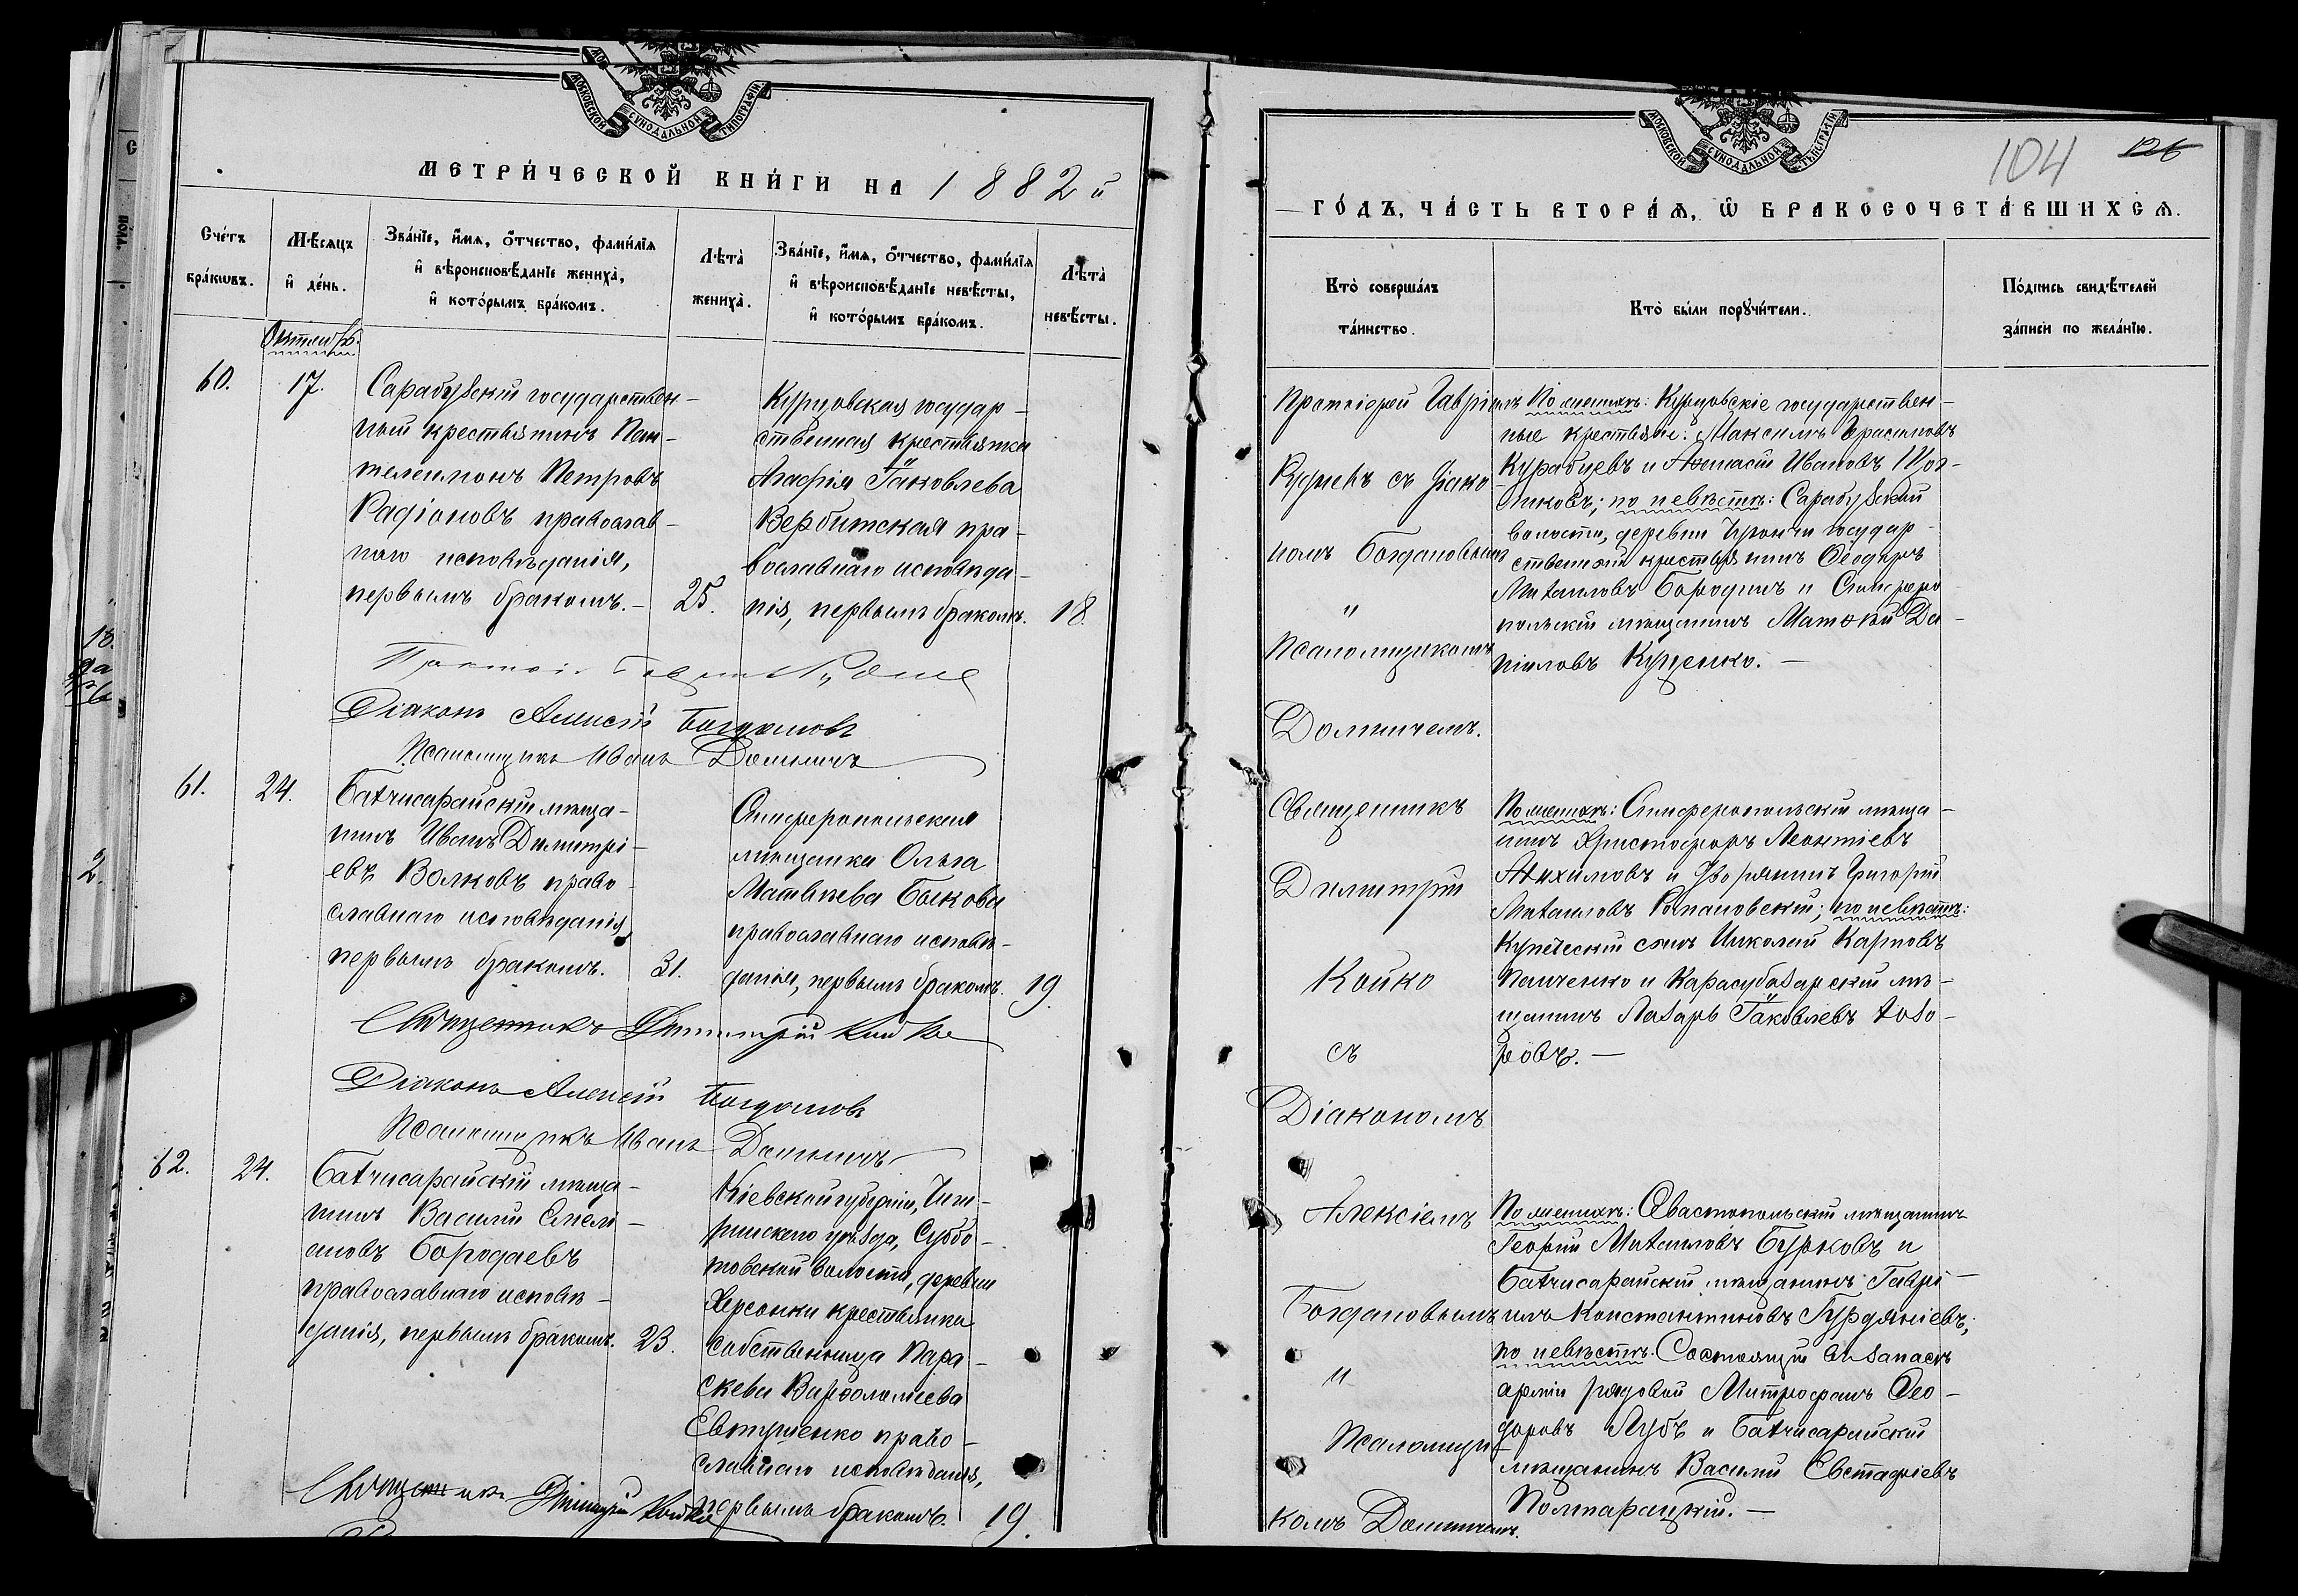 МОСКОВСКОЙ СѴНОДАЛЬНОЙ ТИПОГРАФІИ
МЕТРИ́ЧЕСКОЙ КНИ́ГИ НА 1882й
Сче́тъ бра́кѡвъ.
Мѣ́сѧцъ и҆ де́нь.
Зва́нїе, и҆́мѧ, ѻ҆́тчество, фами́лїѧ и҆ вѣроисповѣ́данїе жениха̀, и҆ кото́рымъ бра́комъ.
Лѣта̀ жениха̀.
Зва́нїе, и҆́мѧ, ѻ҆́тчество, фами́лїѧ и҆ вѣроисповѣ́данїе невѣ́сты, и҆ кото́рымъ бра́комъ.
Лѣта̀ невѣ́сты.
Октябрь.
60.
17.
Сарабузскій государствен-
ный крестьянинъ Пан-
телеимонъ Петровъ
Радіоновъ православ-
наго исповѣданія,
первымъ бракомъ.-
25.
Курцовская государ-
ственная крестьянка
Агафія Іаковлева
Вербитская пра-
вославнаго исповѣда-
нія, первымъ бракомъ.
18.
Діаконъ Алексій Богдановъ
Псаломщикъ Иванъ Домничъ
61.
24.
Бахчисарайскій мѣща-
нинъ Иванъ Димитрі-
евъ Волковъ право-
славнаго исповѣданія,
первымъ бракомъ.
31.
Симферопольская
мѣщанка Ольга
Матвѣева Быкова
православнаго исповѣ-
данія, первымъ бракомъ.
19.
Священникъ Димитрій Койко
Діаконъ Алексій Богдановъ
Псаломщикъ Иванъ Домничъ
62.
24.
Бахчисарайскій мѣща-
нинъ Василій Емели-
ановъ Бородаевъ
православнаго исповѣ-
данія, первымъ бракомъ.
23.
Кіевской губерніи, Чиги-
ринскаго уѣзда, Суббо-
товской волости, деревни
Херсонки крестьянка
собственница Пара-
скева Варѳоломіева
Евтушенко право-
славнаго исповѣданія,
первымъ бракомъ.
19.
Священникъ Димитрій Койко
МОСКОВСКОЙ СѴНОДАЛЬНОЙ ТИПОГРАФІИ
104 126
ГО́ДЪ, ЧА́СТЬ ВТОРА́Ѧ, Ѽ БРАКОСОЧЕТА́ВШИХСѦ.
Кто̀ соверша́лъ та́инство.
Кто̀ бы́ли порꙋчи́тели.
По́дпись свидѣ́телей за́писи по жела́нїю.
Протоіерей Гавріилъ
Руднев съ діако-
номъ Богдановымъ
и
Псаломщикомъ
Домничемъ.
По женихѣ: Курцовскіе государствен-
ные крестьяне: Максимъ Герасимовъ
Курабцевъ и Аѳанасій Ивановъ Щог-
ликовъ; по невѣстѣ: Сарабузской
волости, деревни Чрончи государ-
ственный крестьянинъ Ѳеодоръ
Михаиловъ Бородинъ и Симферо-
польскій мѣщанинъ Матѳій Да-
ніиловъ Куценко.-
Священникъ
Димитрій
Койко
съ
Діакономъ
Алексіемъ
Богдановымъ
и
Псаломщи-
комъ Домничемъ.
По женихѣ: Симферопольскій мѣща-
нинъ Христофоръ Леонтіевъ
Акимовъ и Дворянинъ Григорій
Михаиловъ Романовскій; по невѣстѣ:
Купеческій сынъ Николай Карповъ
Панченко и Карасубазарскій мѣ-
щанинъ Лазарь Іаковлевъ Хозо-
ровъ.-
По женихѣ: Севастопольскій мѣщанинъ
Георгій Михаиловъ Бурковъ и
Бахчисарайскій мѣщанинъ Гаврі-
илъ Константиновъ Гурдяніевъ;
по невѣстѣ: Состоящій въ запасѣ
арміи рядовой Митрофанъ Ѳео-
доровъ Лубъ и Бахчисарайскій
мѣщанинъ Василій Евстафіевъ
Полтарацкій.-